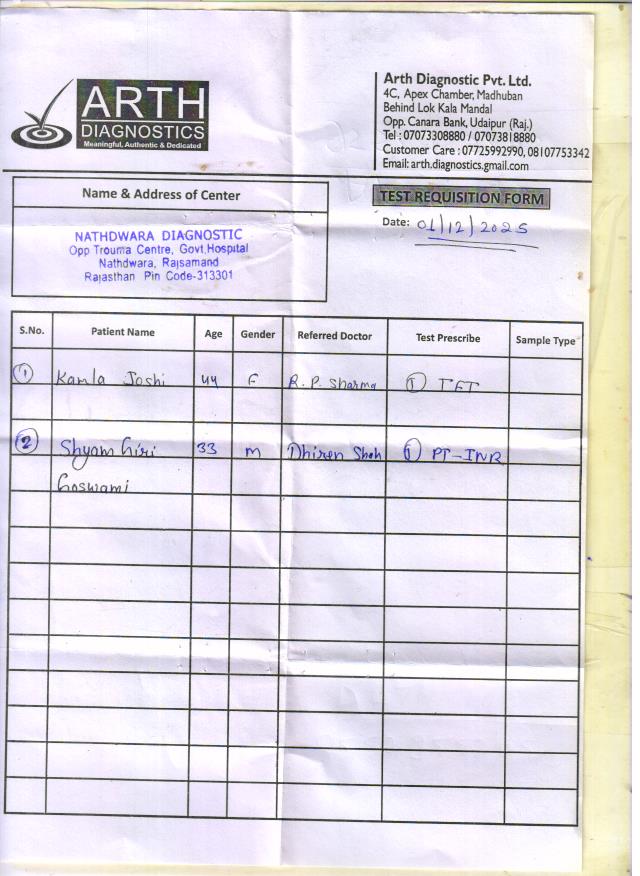 ARTH
DIAGNOSTICS
Meaningful, Authentic & Dedicated
Arth Diagnostic Pvt. Ltd.
4C, Apex Chamber, Madhuban
Behind Lok Kala Mandal
Opp. Canara Bank, Udaipur (Raj.)
Tel : 07073308880 / 07073818880
Customer Care : 07725992990, 08107753342
Email: arth.diagnostics.gmail.com
Name & Address of Center
TEST REQUISITION FORM
Date: 01/12/2025
NATHDWARA DIAGNOSTIC
Opp Trouma Centre, Govt.Hospital
Nathdwara, Rajsamand
Rajasthan Pin Code-313301
S.No. Patient Name Age Gender Referred Doctor Test Prescribe Sample Type
1 Kamla Joshi 44 F R.P. Sharma 1 TFT
2 Shyam Giri 33 M Dhiren Shah 1 PT-INR
Goswami